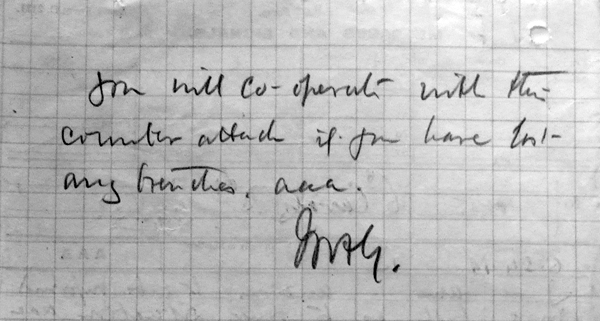 you will co-operate with this
counter attack if you have lost
any trenches. aaa.